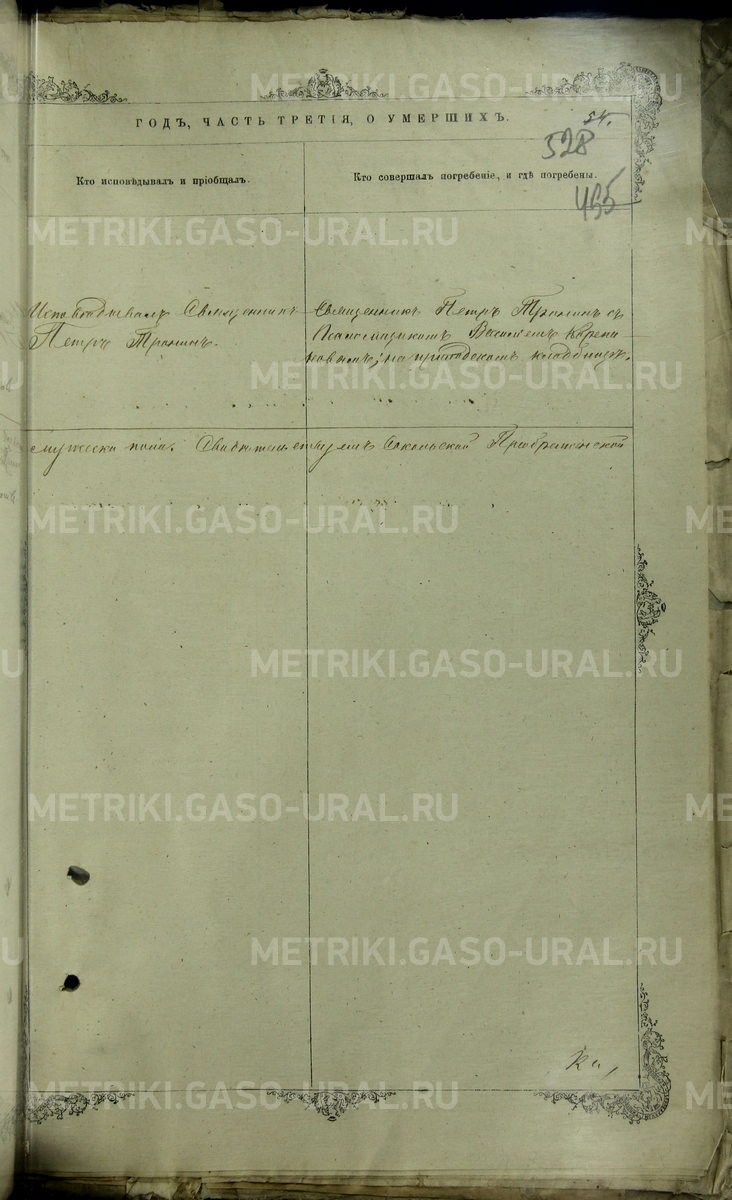 METRIKI.GASO-URAL.RU
ГОДЪ, ЧАСТЬ ТРЕТІЯ, О УМЕРШИХЪ.
54.
528
Кто исповѣдывалъ и пріобщалъ.
Кто совершалъ погребеніе, и гдѣ погребены.
495
METRIKI.GASO-URAL.RU
Исповѣдывалъ Священникъ
Петръ Тронинъ.
Священникъ Петръ Тронинъ съ
Псаломщикомъ Василіемъ
новымъ; на приходскомъ кладбищѣ.
METRIKI.GASO-URAL.RU
мужеска пола. Свидѣтельствуемъ Сокольской Преображенской
METRIKI.GASO-URAL.RU
METRIKI.GASO-URAL.RU
METRIKI.GASO-URAL.RU
METRIKI.GASO-URAL.RU
METRIKI.GASO-URAL.RU